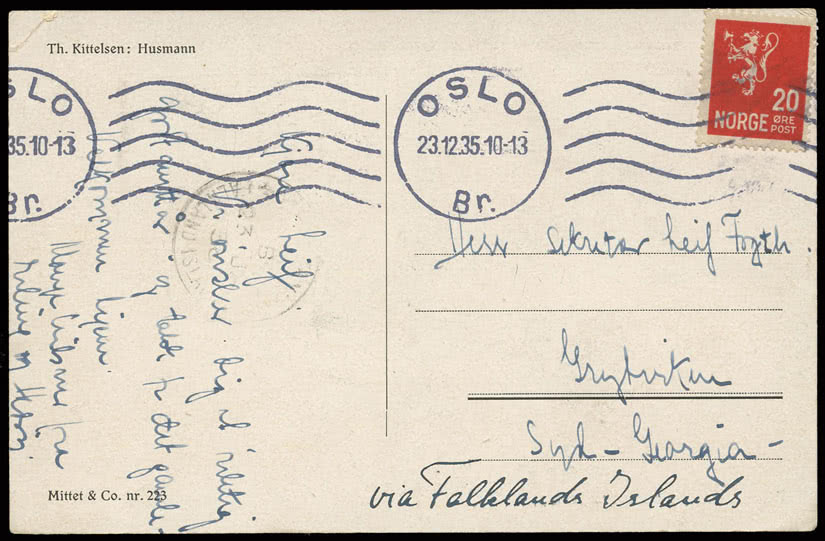 Th. Kittelsen: Husmann
OSLO
35.10-13
Br.
OSLO
23.12.35.10-13
Br.
20
NORGE ØRE
POST
Kjære Leif.
ønsker dig et riktig
godt nytt år og takk for det gamle.
Velkommen hjem
Mange hilsner fra
Erling og
Herr sekretær Leif
Grytviken
Syd-Georgia-
via Falklands Islands
Mittet & Co. nr. 223